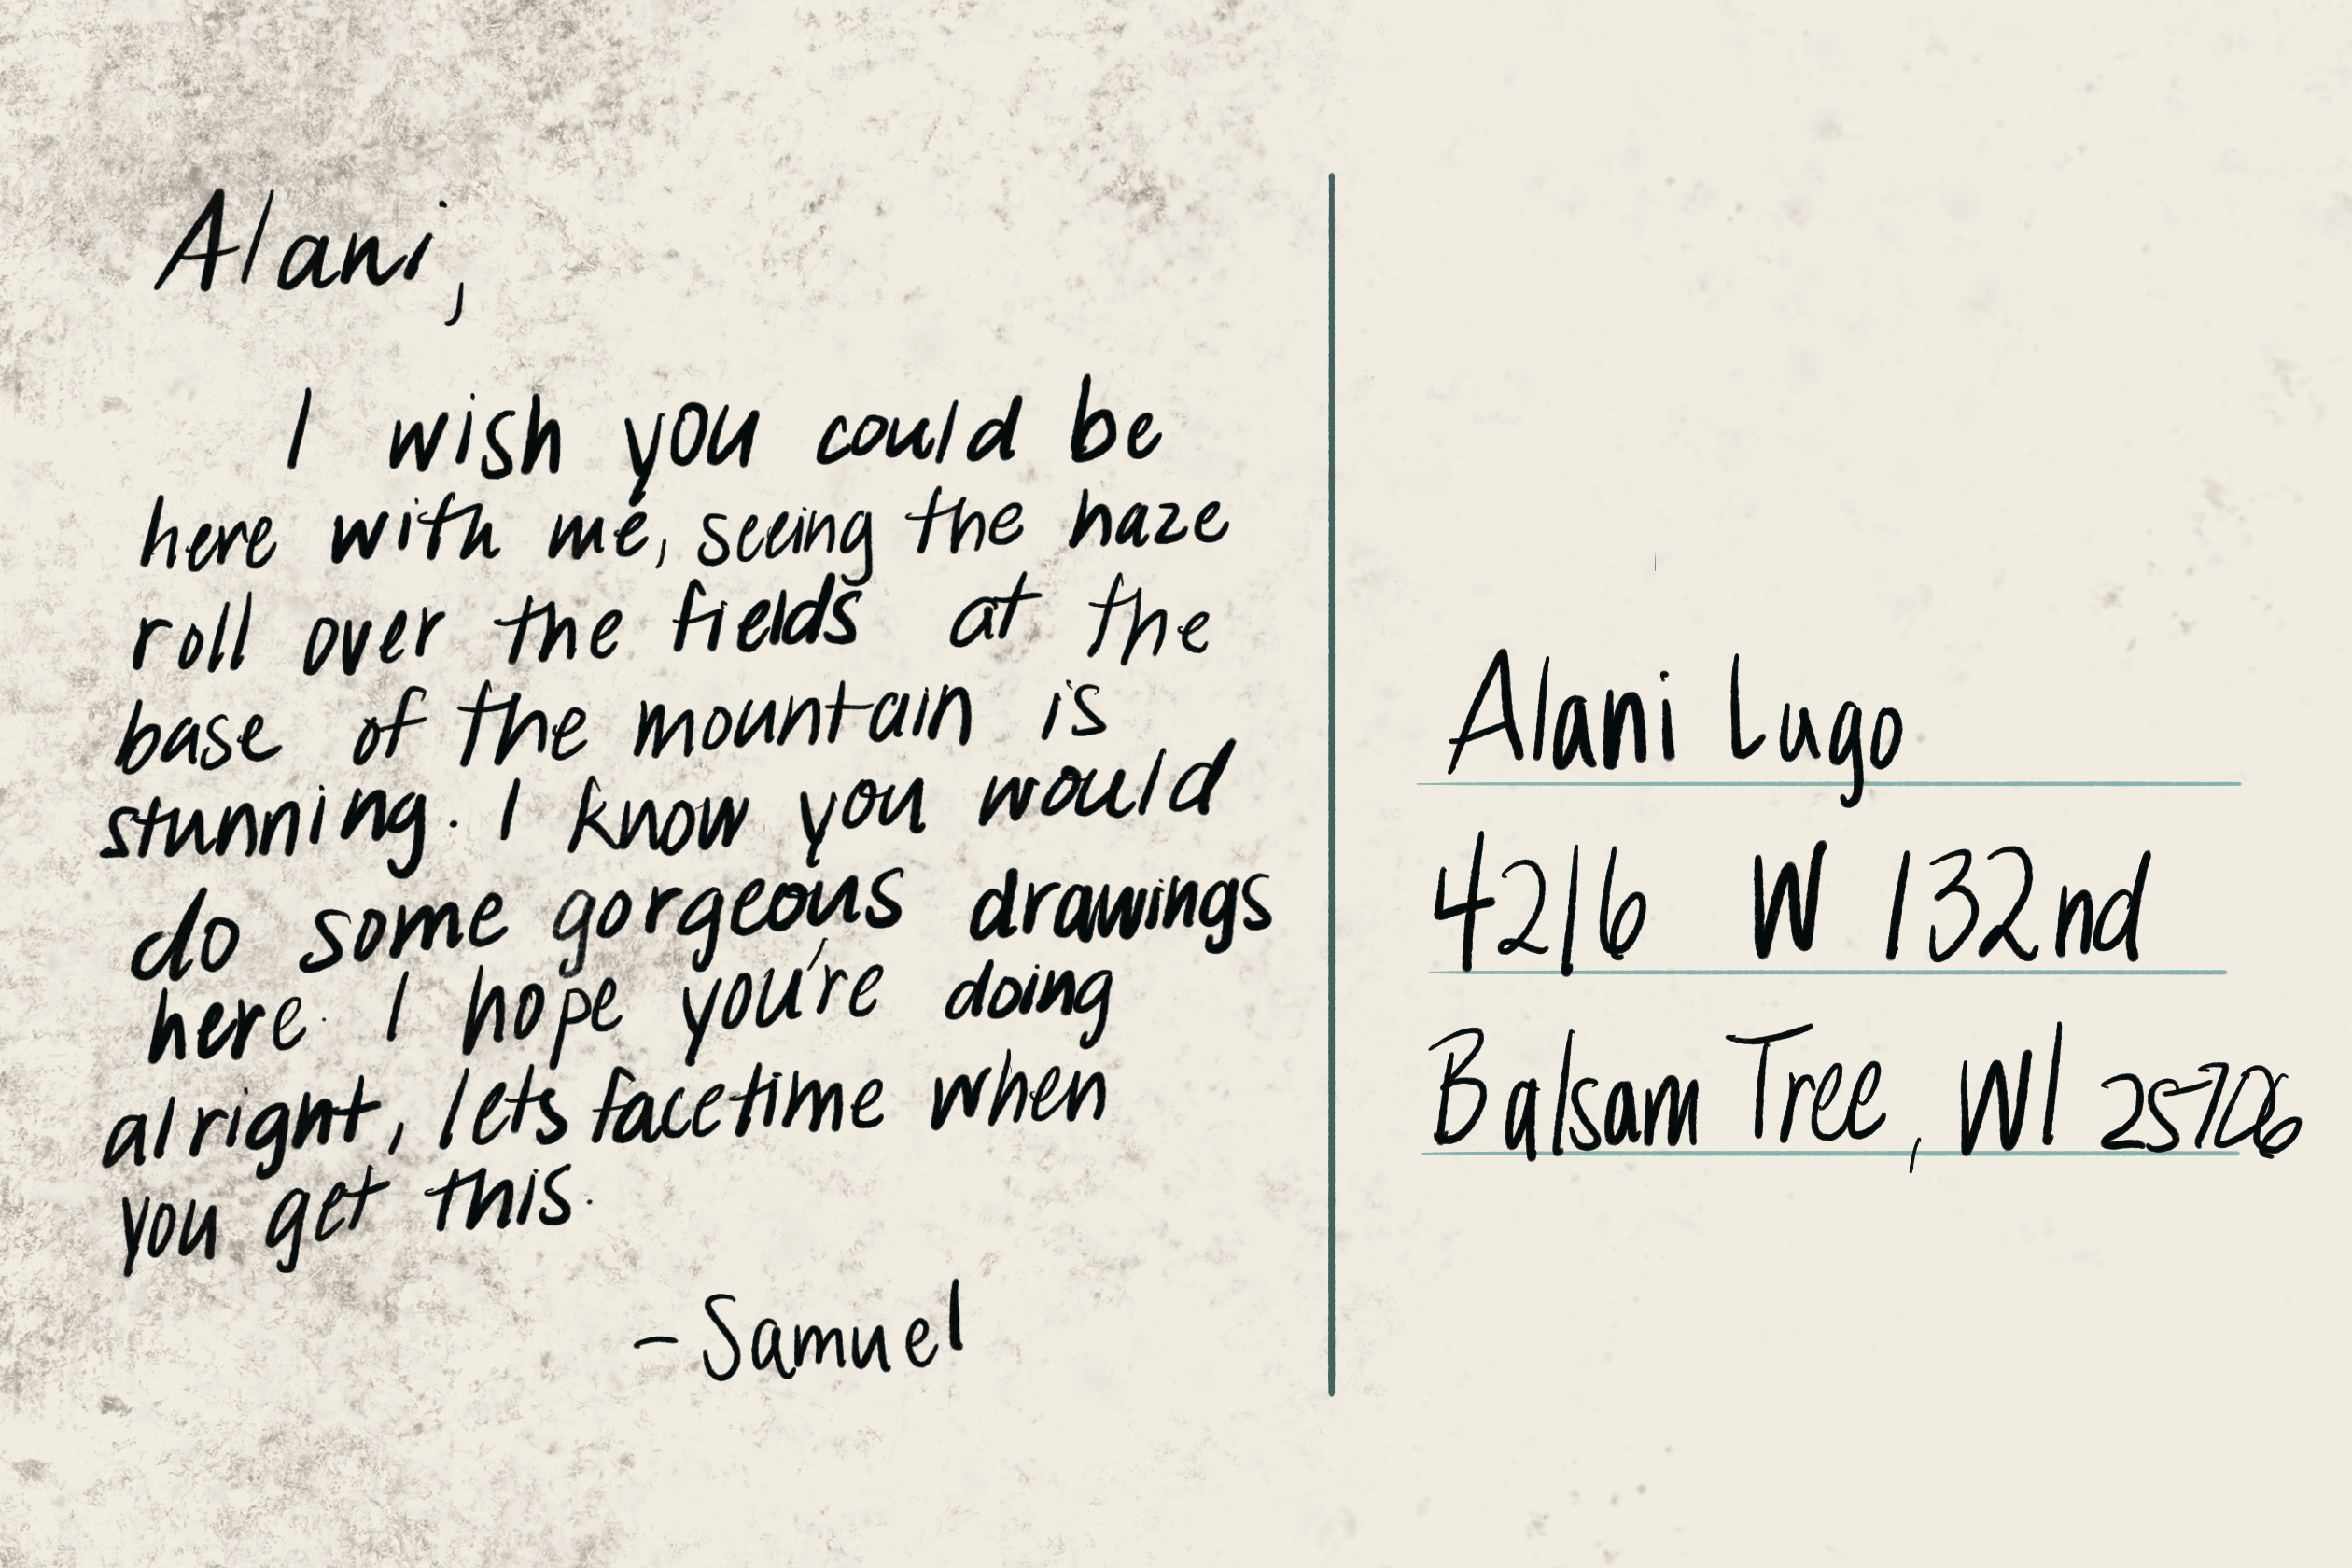 Alani,
I wish you could be
here with me, seeing the haze
roll over the fields at the
base of the mountain is
stunning. I know you would
do some gorgeous drawings
here. I hope you're doing
alright, lets facetime when
you get this.
- Samuel
Alani Lugo
4216 W 132nd
Balsam Tree, WI 25706